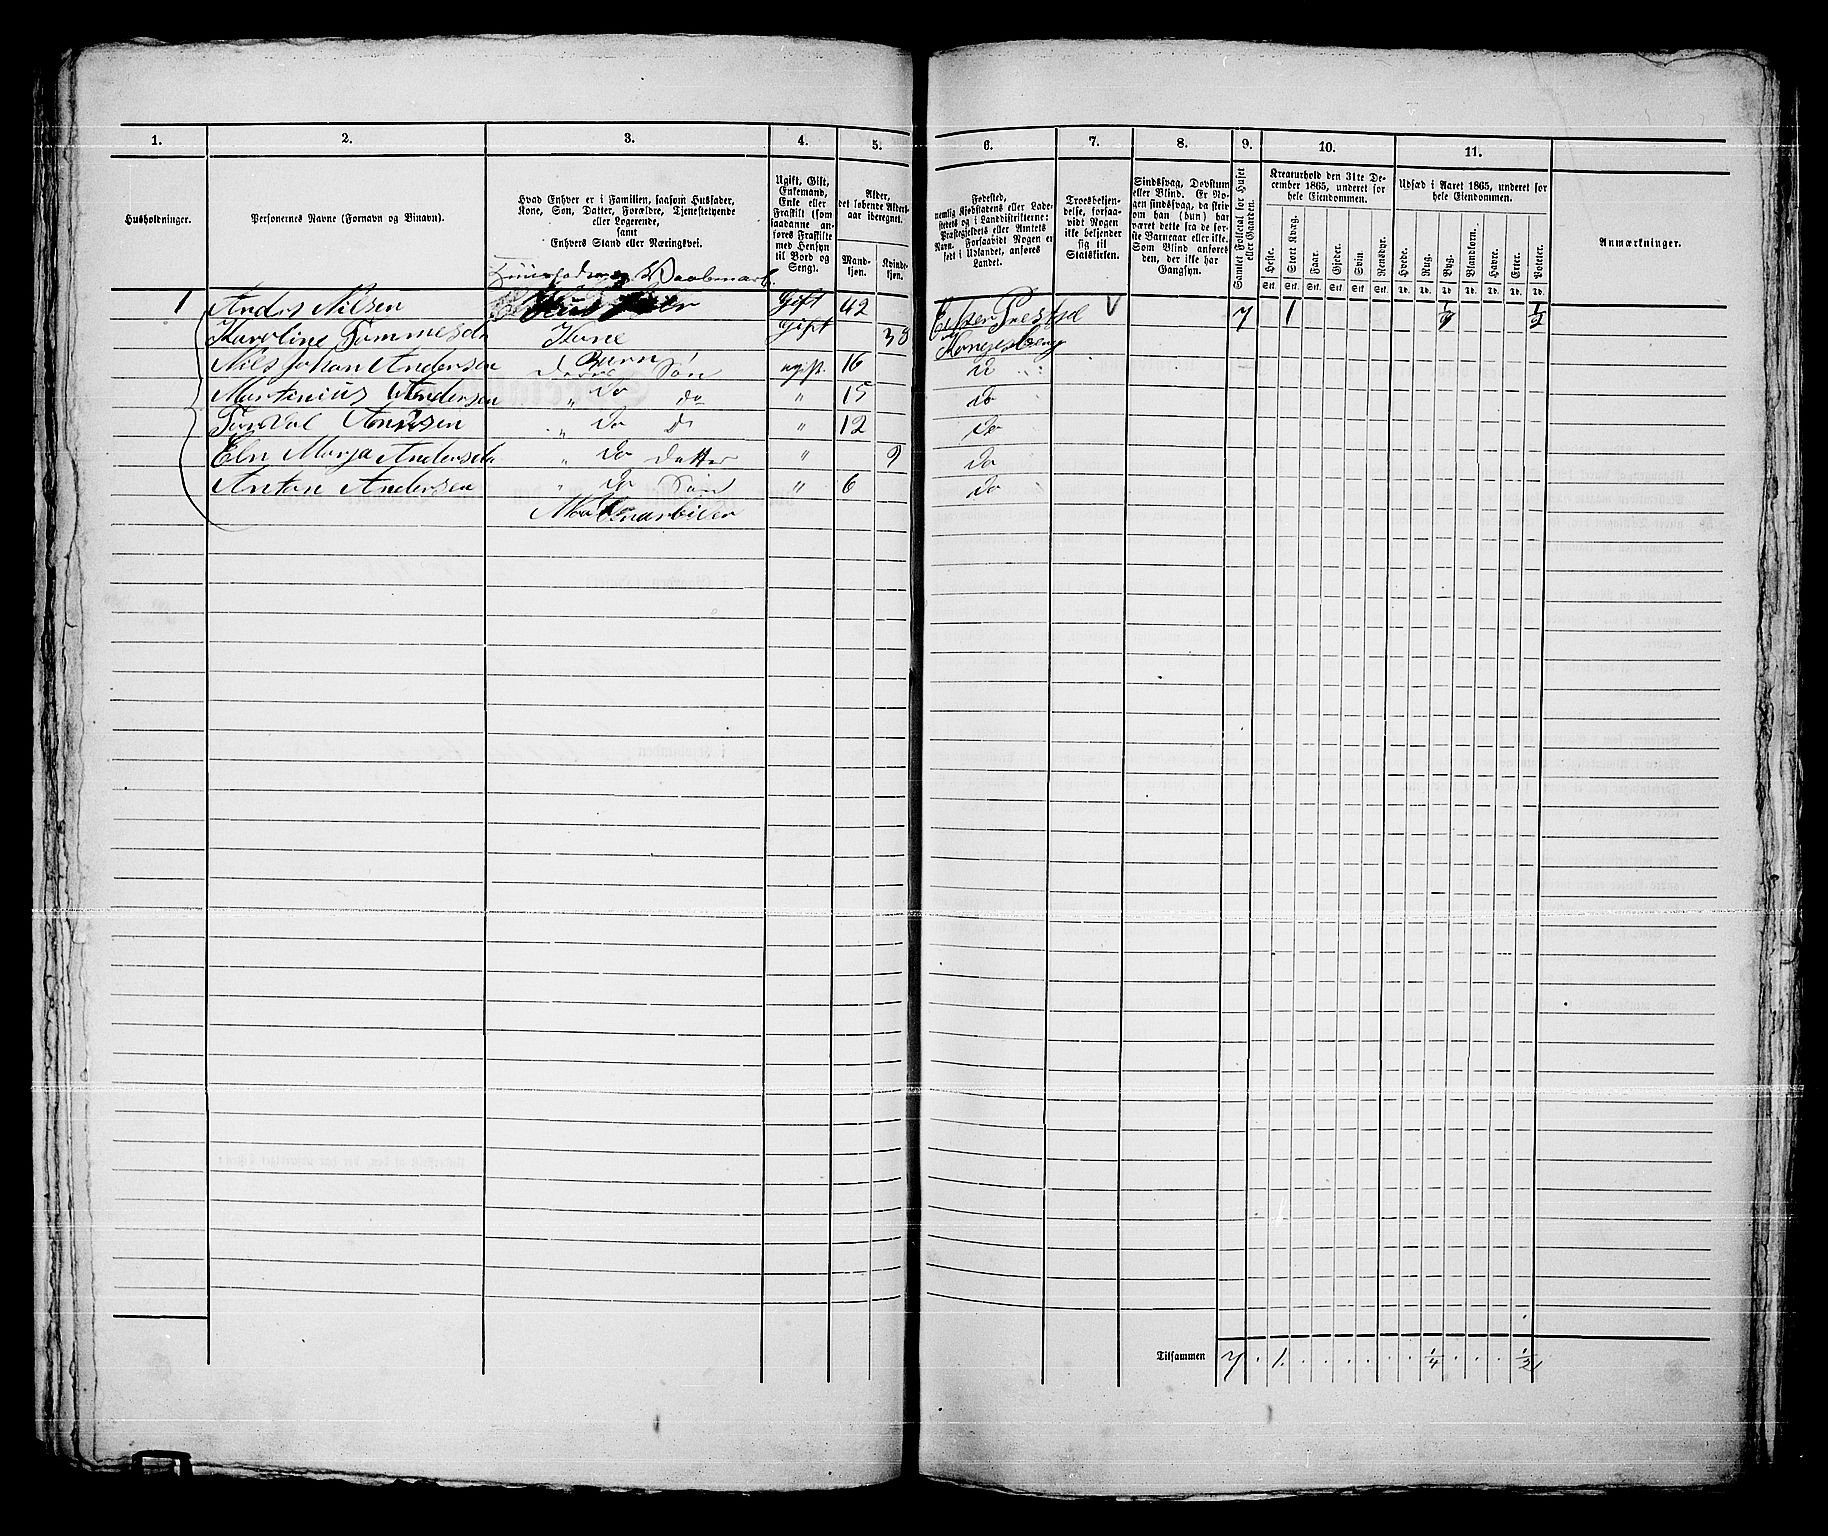 1. 2. 3. 4. 5. 6. 7. 8. 9. 10. 11.
Husholdninger.
Personernes Navne (Fornavn og Binavn).
Hvad Enhver er i Familien, saasom Husfader,
Kone, Søn, Datter, Forældre, Tjenestetyende
eller Logerende,
samt
Enhvers Stand eller Næringsvei.
Ugift, Gift,
Enkemand,
Enke eller
Fraskilt (som
saadanne an-
føres Fraskilte
med Hensyn
til Bord og
Seng).
Alder,
det løbende Alders-
aar iberegnet.
Mand-
kjøn.
Kvinde-
kjøn.
Fødested,
nemlig Kjøbstadens eller Lade-
stedets og i Landdistrikterne:
Præstegjeldets eller Amtets
Navn. Forsaavidt Nogen er
født i Udlandet, anføres
Landet.
Troesbekjen-
delse, forsaa-
vidt Nogen
ikke bekjender
sig til
Statskirken.
Sindssvag, Døvstum
eller Blind. Er No-
gen sindssvag, da skriv
om han (hun) har
været dette fra de før-
ste Barneaar eller ikke.
Som Blind anføres
den, der ikke har
Gangsyn.
Samlet Folketal for Huset
eller Gaarden.
Kreaturhold den 31te De-
cember 1865, underet for
hele Eiendommen.
Heste. Stort Kvæg. Faar. Gjeder. Svin. Rensdyr.
Stk. Stk. Stk. Stk. Stk. Stk.
Udsæd i Aaret 1865, underet for
hele Eiendommen.
Hvede. Rug. Byg. Blandkorn. Havre. Erter. Poteter.
Td. Td. Td. Td. Td. Td. Td.
Anmærkninger.
1 Anders Nilsen Gift 42 7 1 1/4 1/2
Karoline Tommesdn Kone Gift 38 Kongesberg
Nils Johan Andersen Søn ugift 16 do
Martinius Andersen " do do " 15 do
Andersen " do do " 12 do
Eln Marja Andersdn " do datter " 9 do
Anton Andersen " do Søn " 6 do
Tilsammen 7 1 1/4 1/2